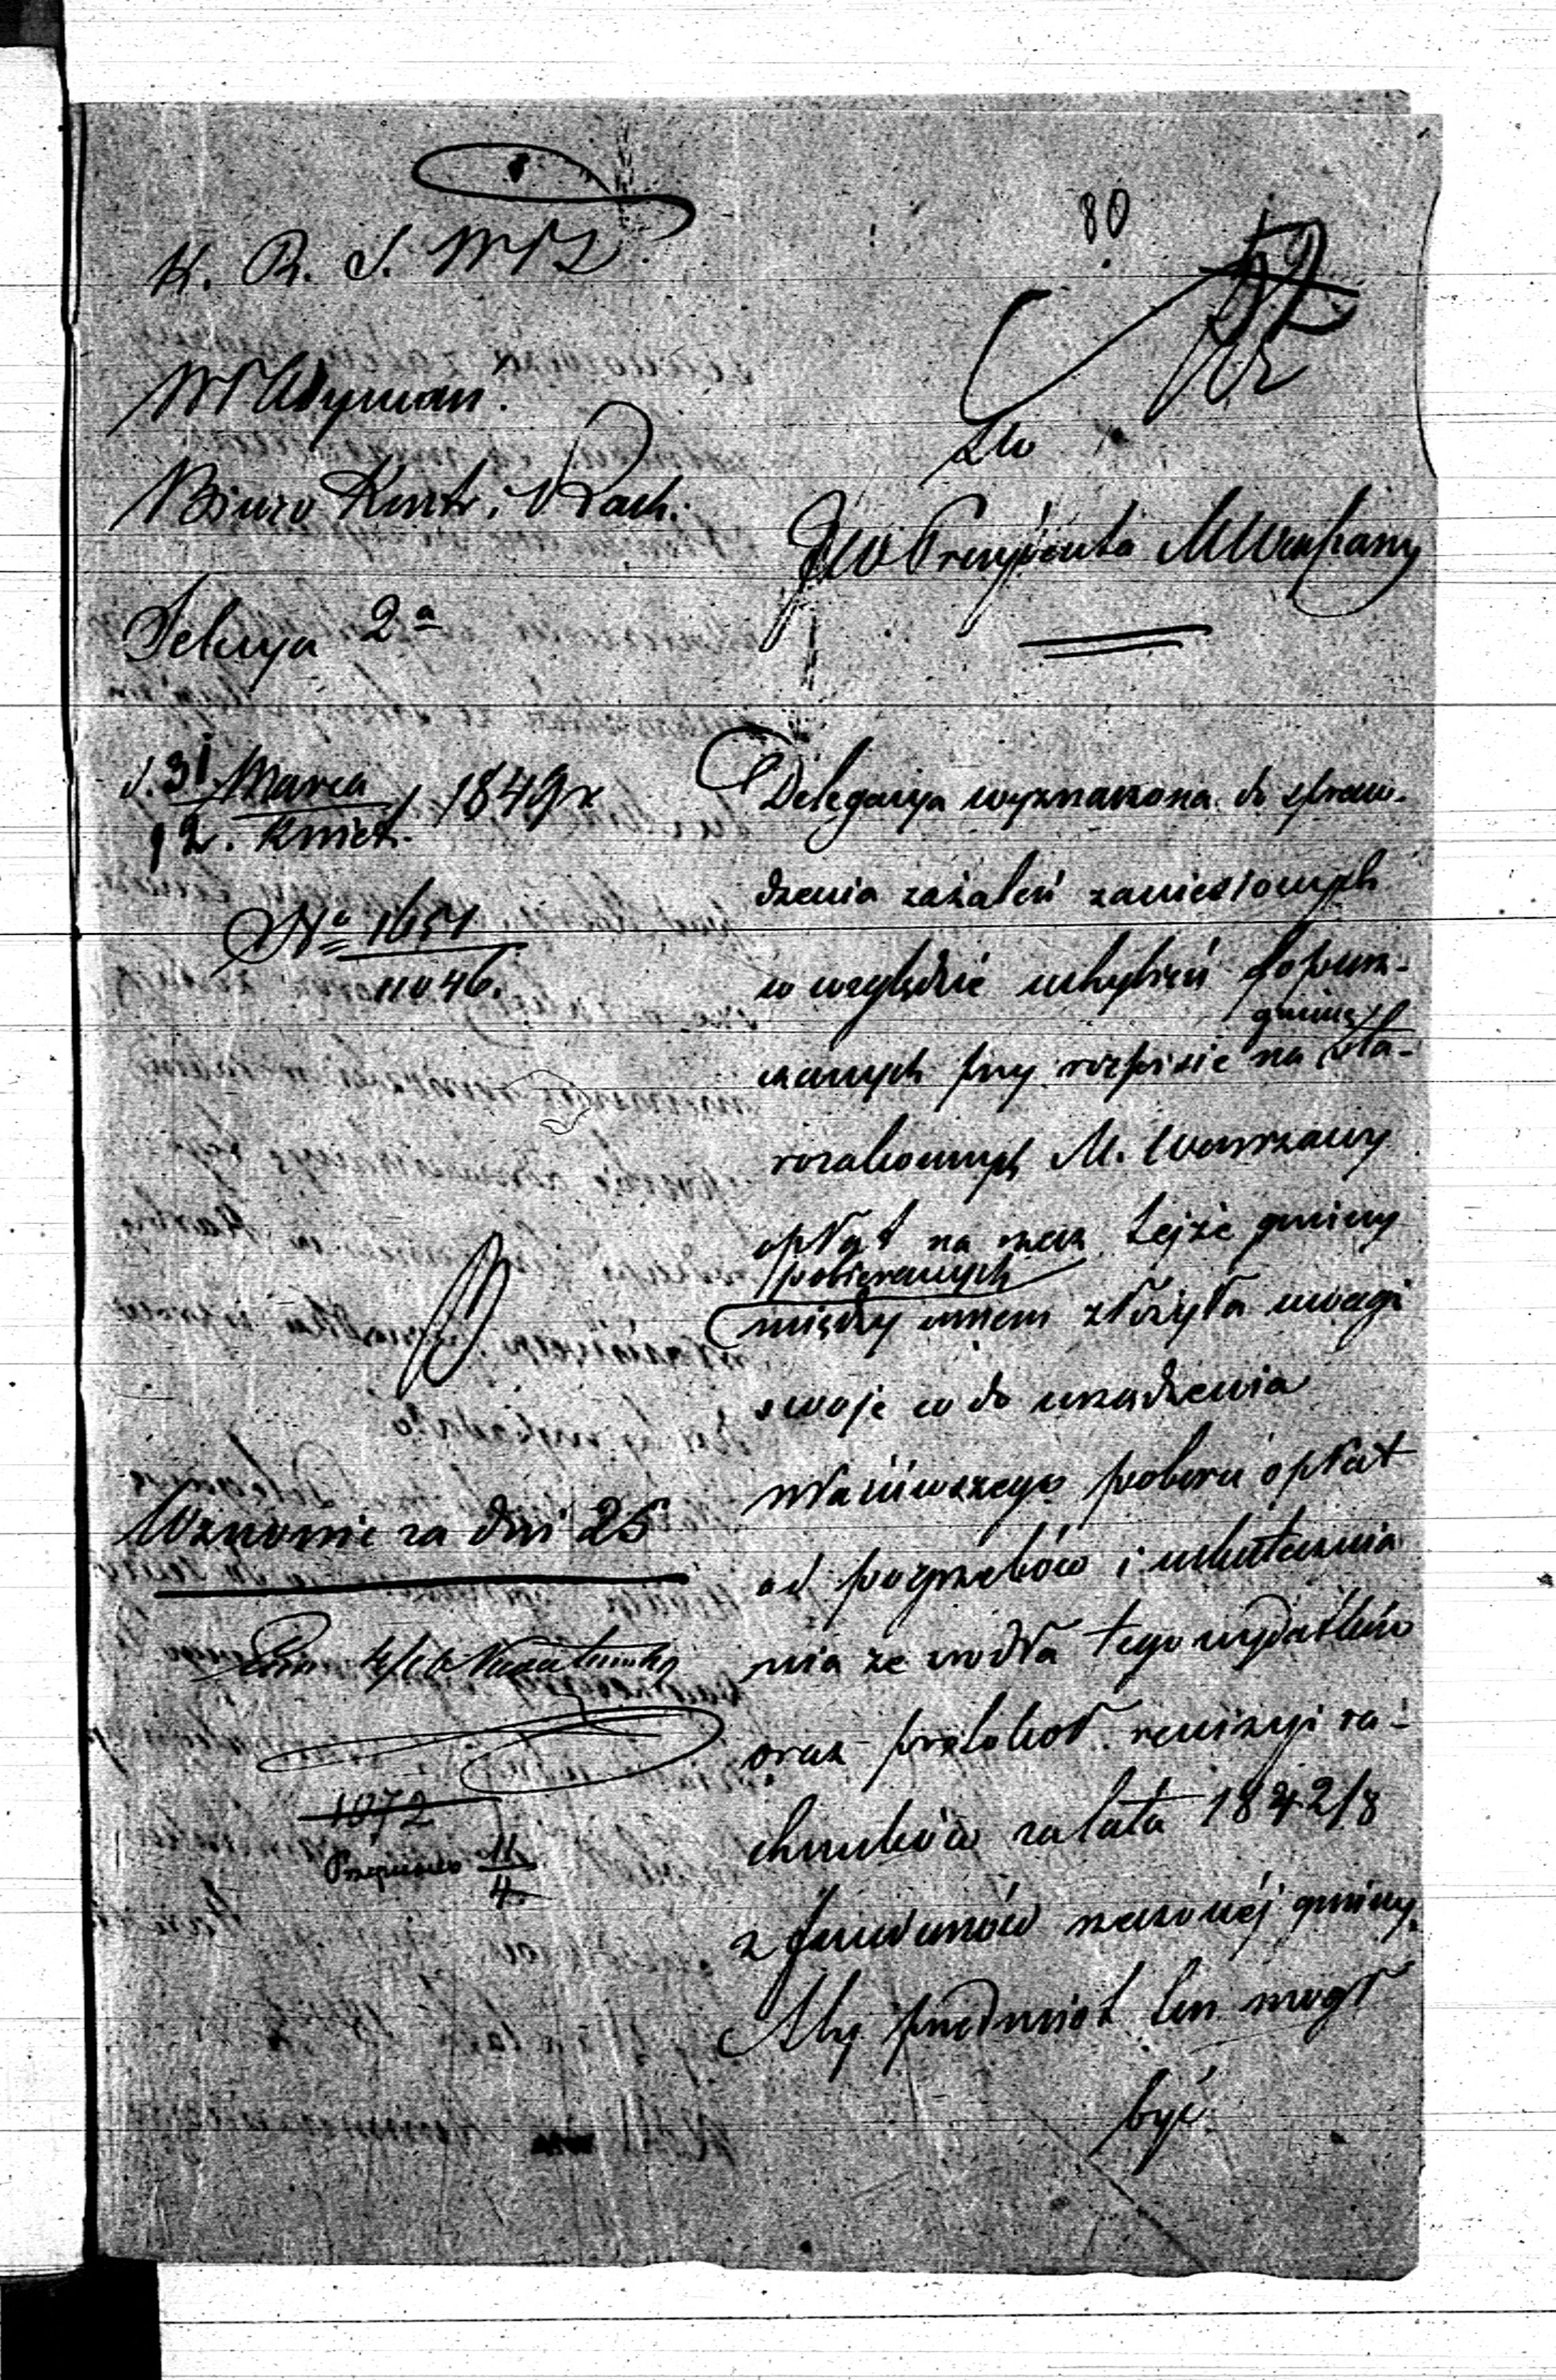 80
52
K. R. S. W. i D.
W. Wyznań.
Biuro Kontr. i Rach.
Sekcya 2a
d. 31 Marca / 12. Kwiet. 1849 r
No 1651 / 11046.
Wznowić za dni 25
1072
11/4
Do
JW Prezydenta M Warszawy
Delegacya wyznaczona do spraw-
dzenia zażaleń zaniesionych
w względzie uchybień dopusz-
czanych przy rozpisie na gminę sta-
rozakonnych M. Warszawy
opłat na rzecz tejże gminy
pobieranych
między innemi złożyła uwagi
swoje co do urządzenia
właściwszego poboru opłat
od pogrzebów i uskutecznia
nia ze źródła tego wydatków
oraz protokoł rewizyi ra-
chunków za lata 1842/3
z funduszów rzeczonej gminy.
Aby przedmiot ten mogł
być